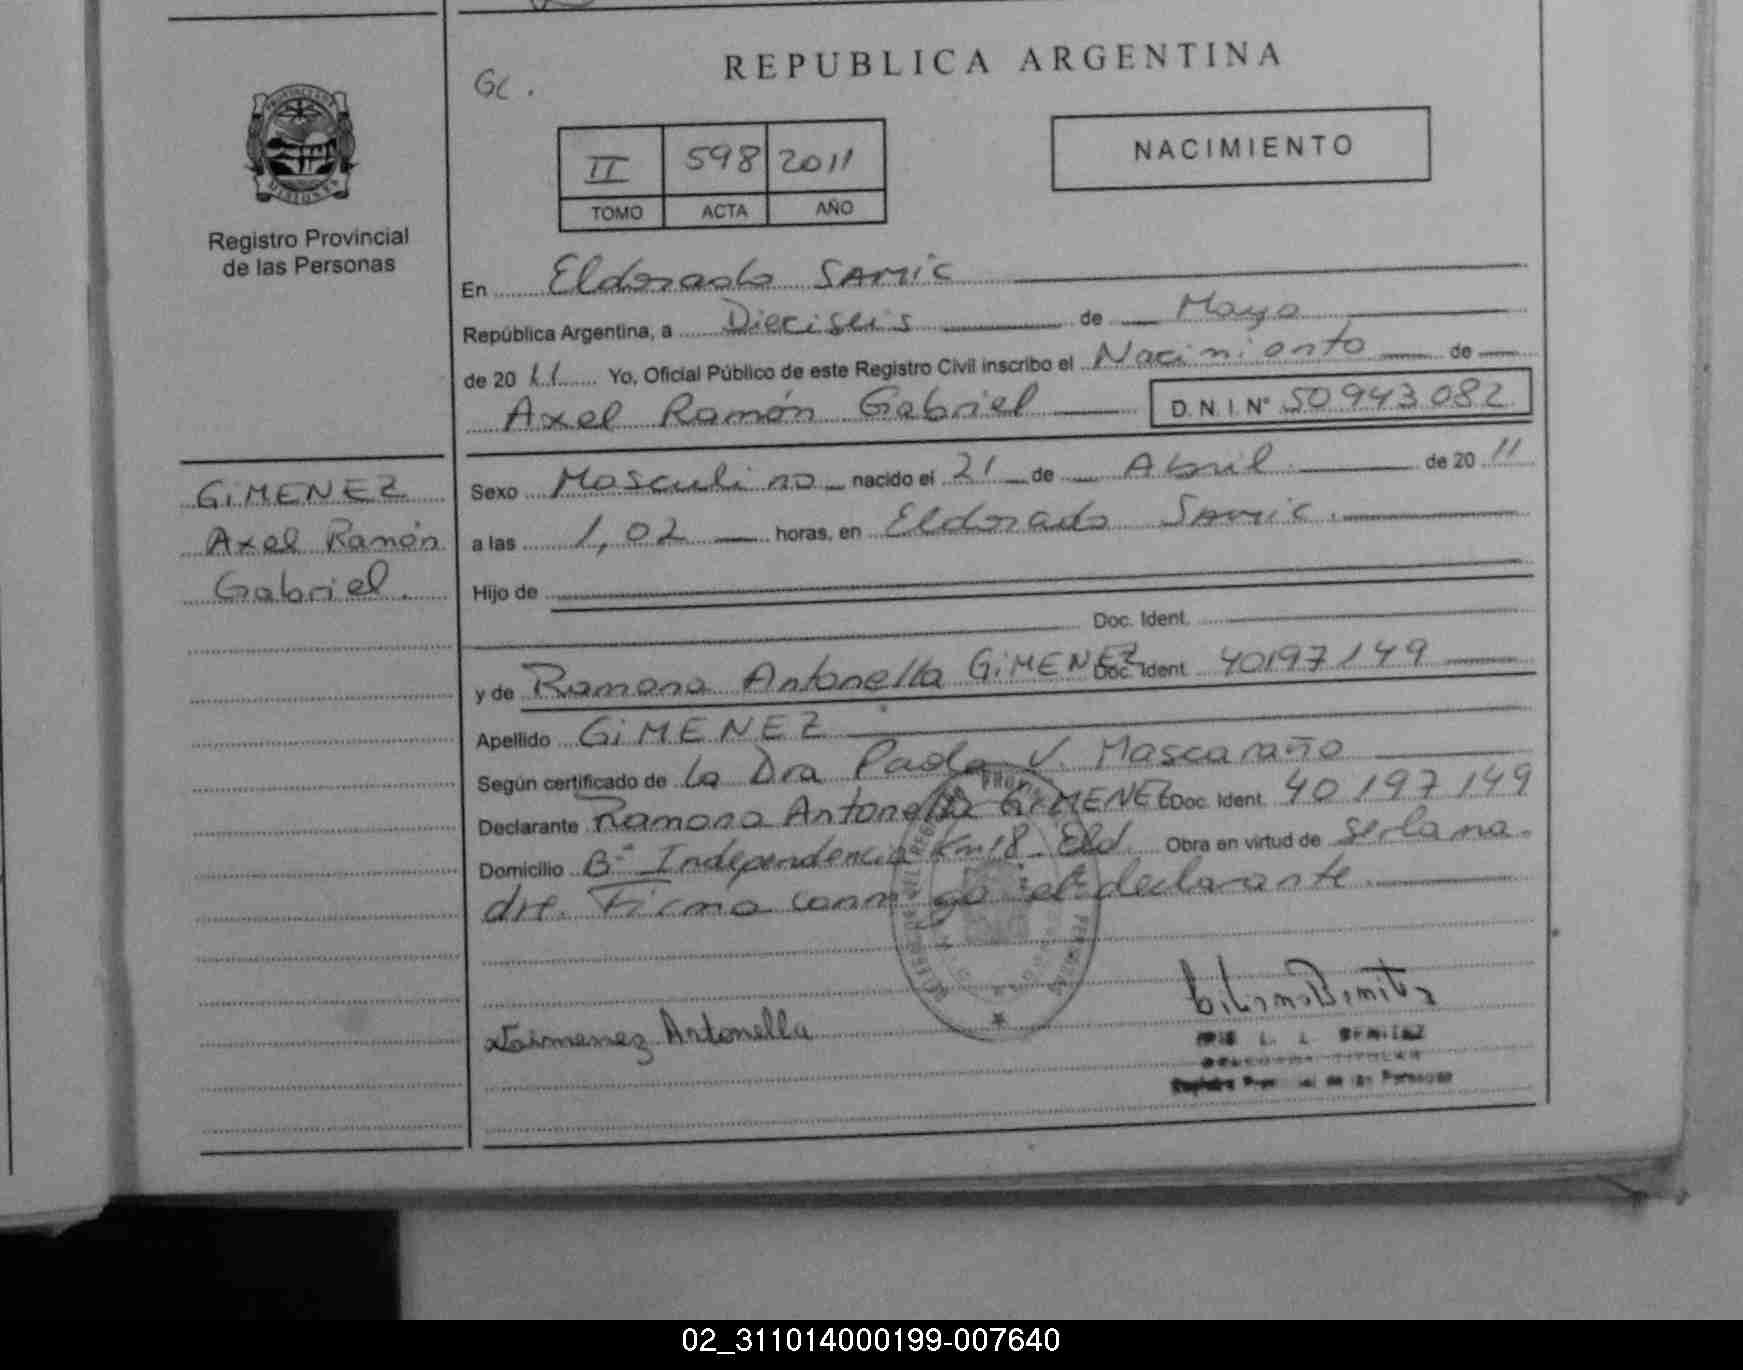 REPUBLICA ARGENTINA
GC.
NACIMIENTO
II 598 2011
TOMO ACTA AÑO
Registro Provincial
de las Personas
En Eldorado SAMIC
República Argentina, a Dieciseis de Mayo
de 20 11 Yo, Oficial Público de este Registro Civil inscribo el Nacimiento de
Axel Ramón Gabriel D.N.I.N° 50943082
GiMENEZ
Axel Ramón
Gabriel.
Sexo Masculino nacido el 21 de Abril de 20 11
a las 1,02 horas, en Eldorado Samic.
Hijo de
Doc. Ident.
y de Ramona Antonella GiMENEZ Doc. Ident. 40197149
Apellido GiMENEZ
Según certificado de la Dra Paola V. Mascaraño
Declarante Ramona Antonella GiMENEZ Doc. Ident. 40197149
Domicilio B° Independencia Km18 Eld. Obra en virtud de ser la ma-
dre. Firma conmigo el declarante.
Gimenez Antonella
L. L. BENITEZ
DELEGADA TITULAR
Registro Provincial de las Personas
02_311014000199-007640